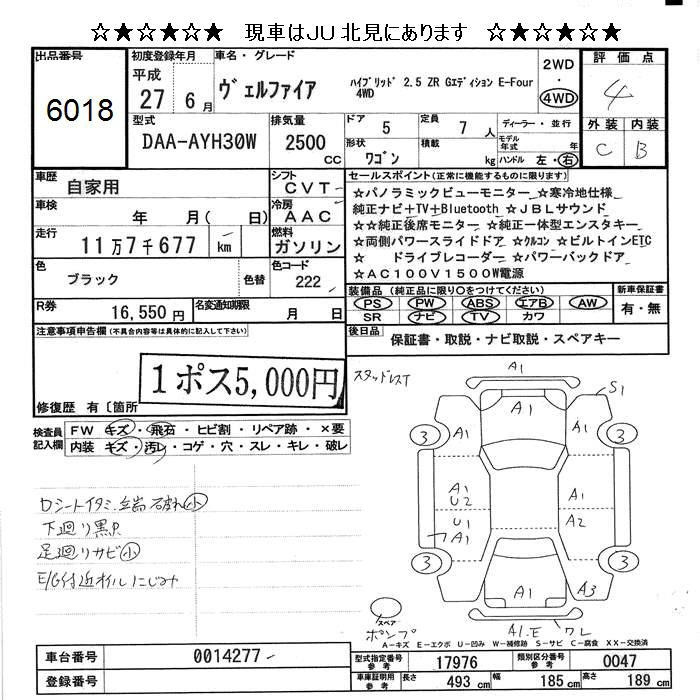 ☆★☆★☆★ 現車はJU北見にあります ☆★☆★☆★
出品番号
6018
初度登録年月
平成
27 6月
車名・グレード
ヴェルファイア
ハイブリッド 2.5 ZR Gエディション E-Four
4WD
2WD
・
4WD
評価点
4
外装 内装
C B
型式
DAA-AYH30W
排気量
2500
CC
ドア
5
定員
7 人
形状
ワゴン
積載
kg
ディーラー・並行
モデル年式 年
ハンドル 左・右
車歴
自家用
シフト
CVT
車検
年 月( 日)
冷房
AAC
走行
11万7千677
km
燃料
ガソリン
色
ブラック
色替
色コード
222
R券
16,550円
名変通知期限
月 日
セールスポイント(正常に機能するものに限ります)
☆パノラミックビューモニター ☆寒冷地仕様
純正ナビ+TV+Bluetooth ☆JBLサウンド
☆☆純正後席モニター ☆純正一体型エンスタキー
☆両側パワースライドドア ☆クルコン ☆ビルトインETC
☆ ドライブレコーダー ☆パワーバックドア
☆AC100V1500W電源
装備品(純正品に限り○をつけてください)
PS PW ABS エアB AW
SR ナビ TV カワ
新車保証書
有・無
後日品
保証書・取説・ナビ取説・スペアキー
注意事項申告欄(不具合内容等は具体的に記入して下さい)
1ポス5,000円
修復歴 有〔箇所
検査員記入欄
FW キズ・飛石・ヒビ割・リペア跡・×要
内装 キズ・汚レ・コゲ・穴・スレ・キレ・破レ
ロシートイタミ.端破れ小
下廻り黒P
足廻りサビ小
E/G付近オイルにじみ
スタッドレスT
A1
S1
3
A1
A1
A1
3
A1
U2
A1
U1
A1
A2
3
A1
3
A3
スペア
ポンプ
A1.E ワレ
A-キズ E-エクボ U-凹み W-補修跡 S-サビ C-腐食 XX-交換済
車台番号
0014277
登録番号
型式指定番号
参考
17976
類別区分番号
参考
0047
車庫証明用
参考
長さ 493 cm 幅 185 cm 高さ 189 cm